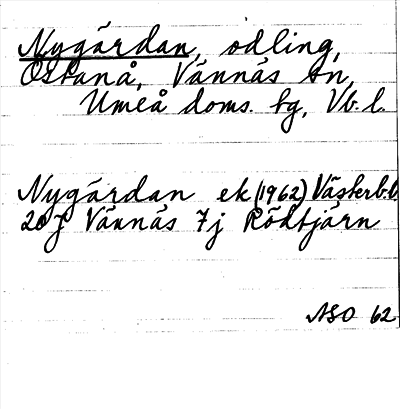 Nygärdan, odling,
Östanå, Vännäs sn,
Umeå doms. tg, Vb. l.
Nygärdan ek (1962) Västerb.l.
20j Vännäs 7j Rödtjärn
ASO 62